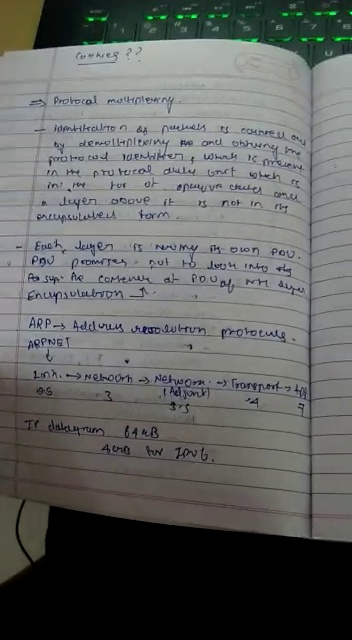 Cookies ??
⇒ Protocol multiplexing.
- Identification of packets is carried out
by demultiplexing the and obtaining the
protocol identifier, which is present
in the protocol data unit which is
in the for of
a layer above it is not in its
encapsulated form.
- Each layer is having its own PDU.
PDU promises not to look into the
content of PDU of Nth layer
Encapsulation ↑.
ARP → Address resolution protocols.
ARPNET
↓
Link. → Network → Network → Transport →
3 (Adjunct) 4 7
3.5
IP datagram 64 KB
for IPv6.